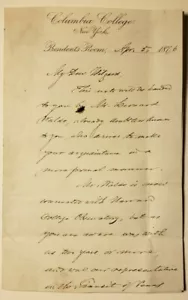 Columbia College
New York
President's Room, Apr. 25. 1876
My Dear
This note will be handed
to you by Mr. Leonard
Waldo, already doubtless known
to you who desires to make
your acquaintance in a
more personal manner.
Mr. Waldo is most
connected with Harvard
College Observatory, but as
you are aware was with
us two years in
and was our representative
in the Transit of Venus